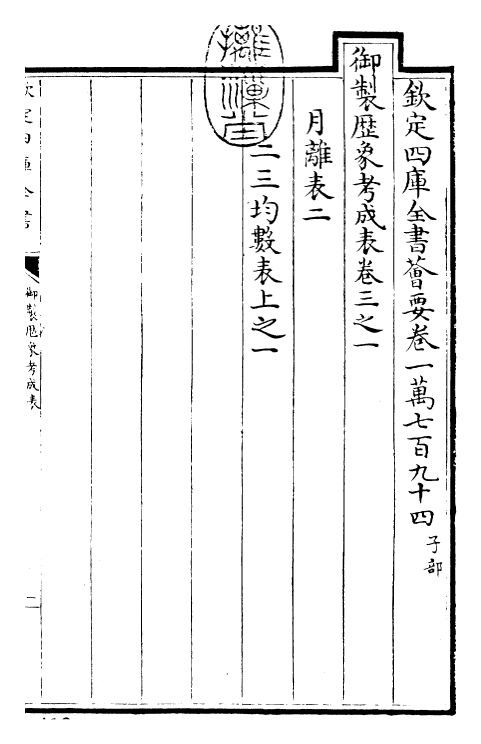 欽定四庫全書薈要卷一萬七百九十四 子部
御製歴象考成表卷三之一
月離表二
二三均數表上之一
欽定四庫全書
御製歴象考成表
二